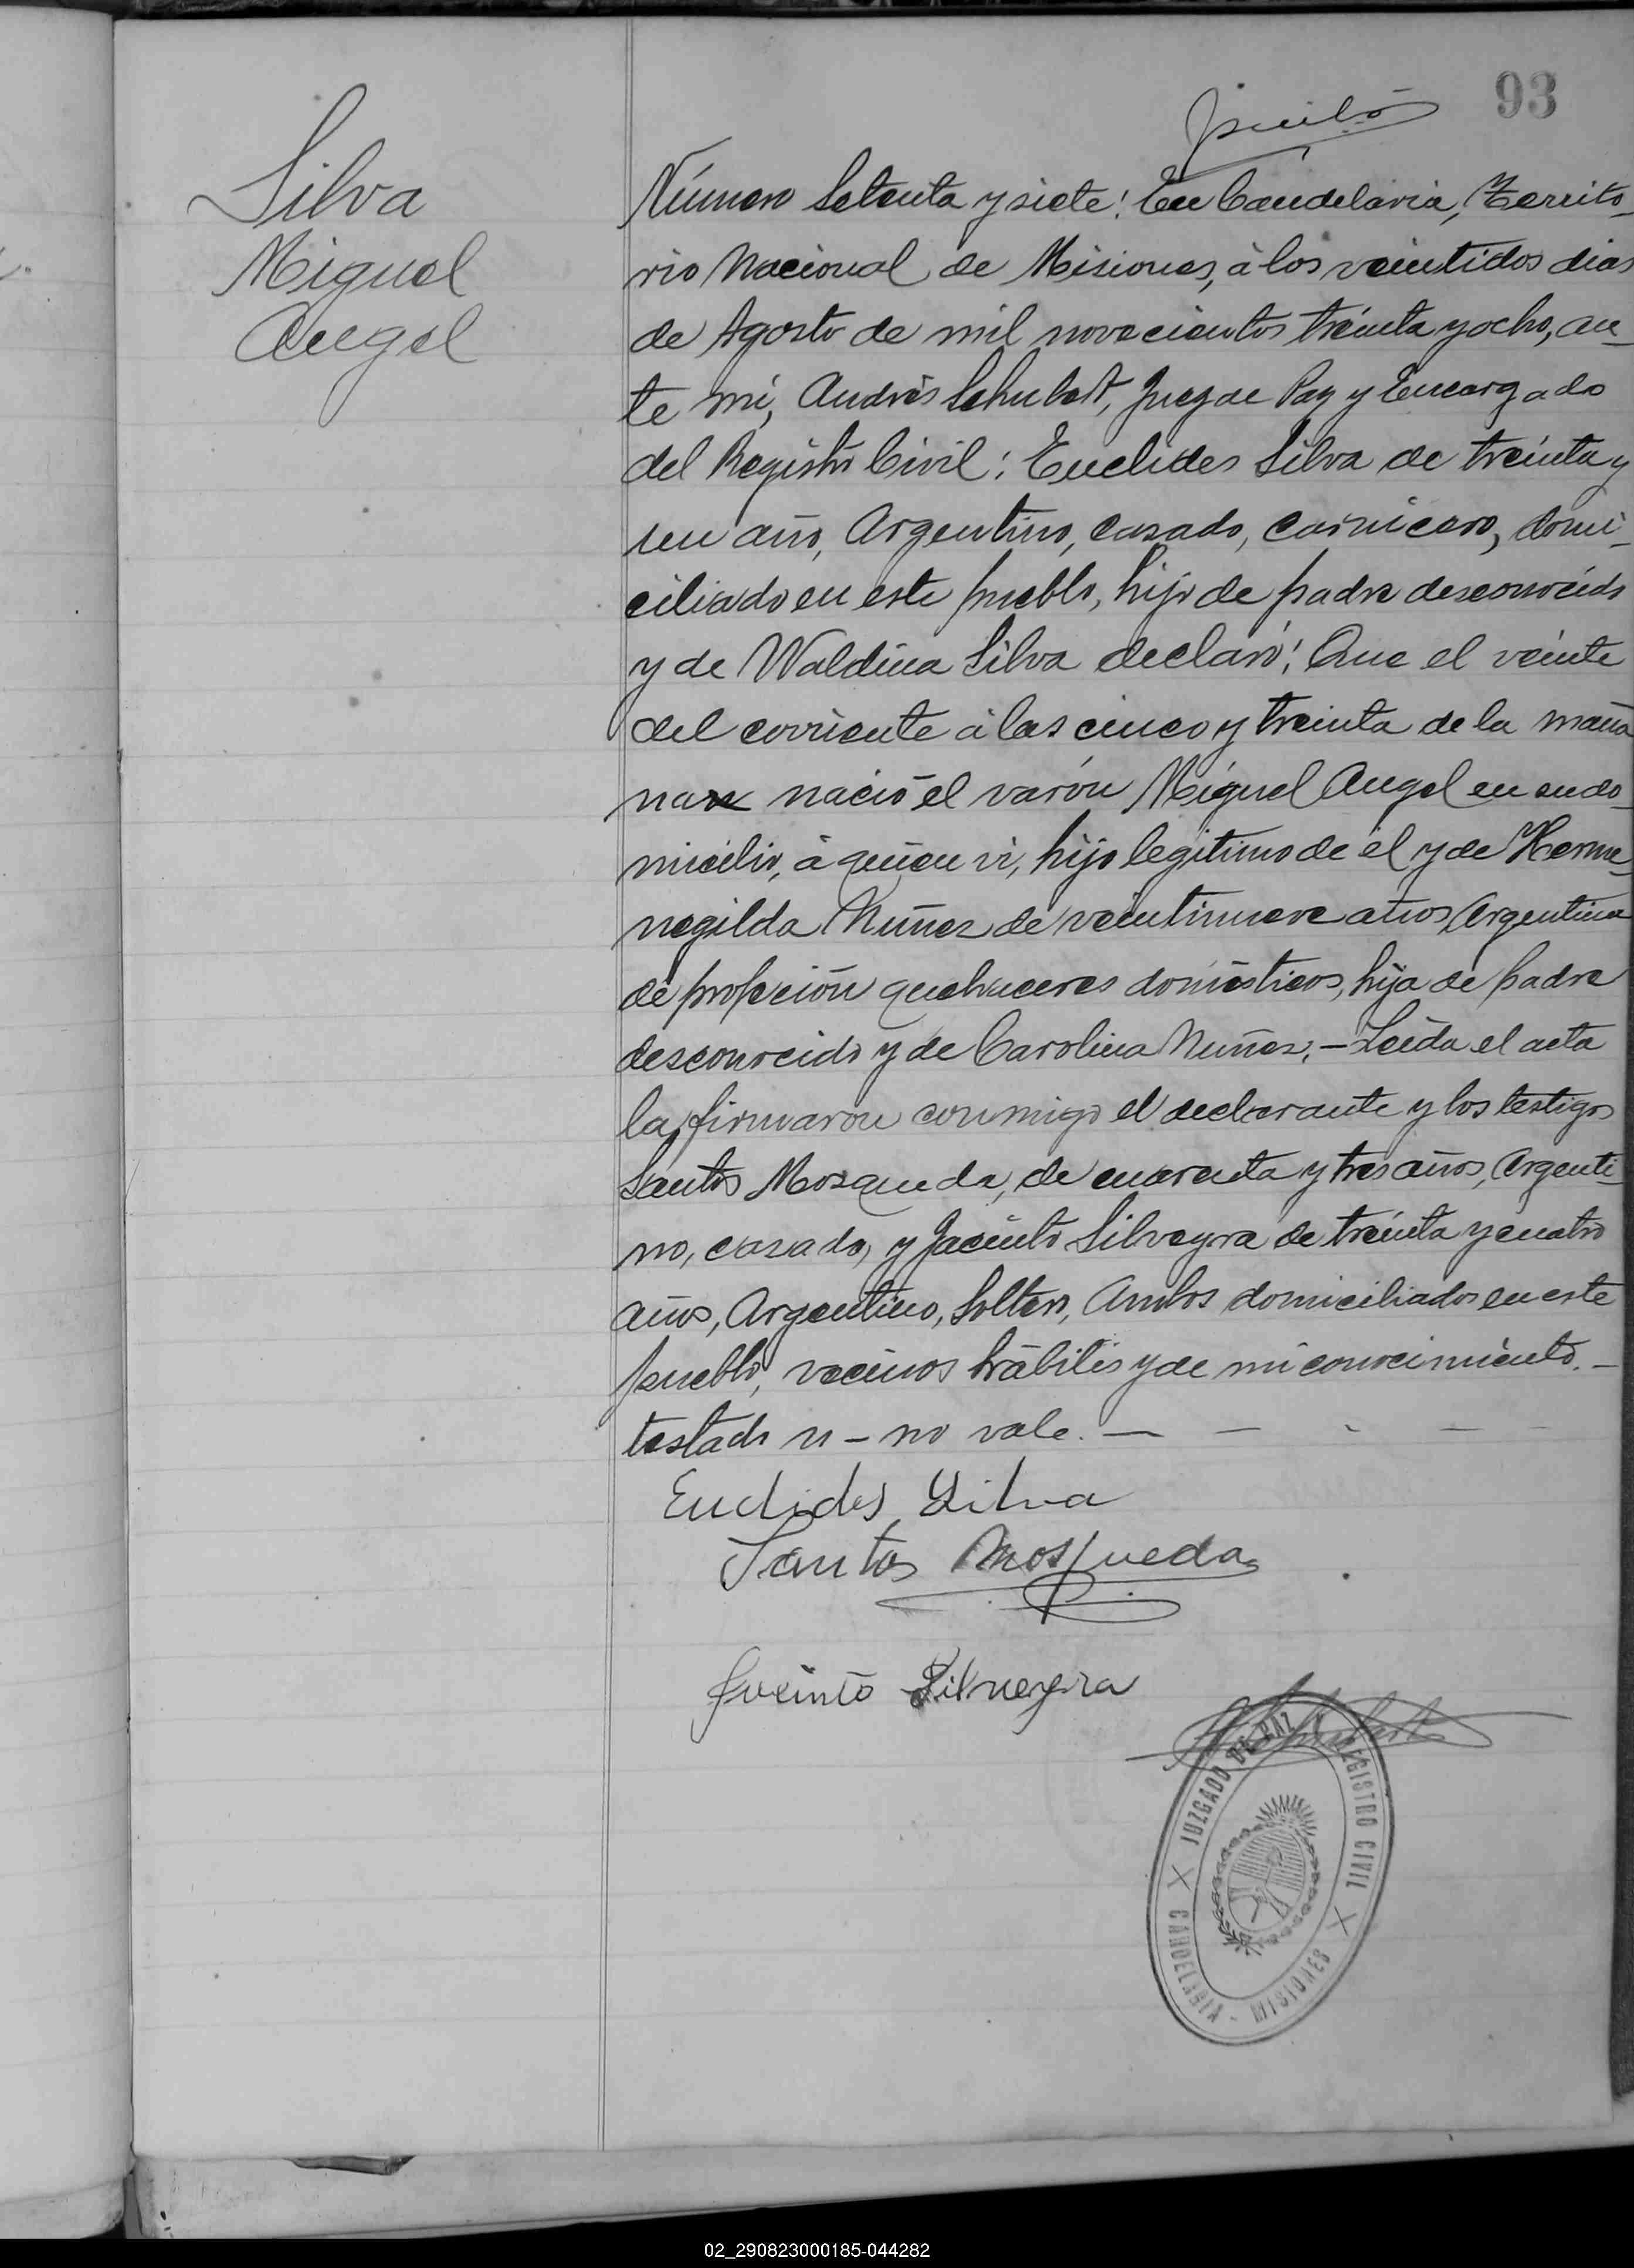 93
Silva
Miguel
Angel
Número Setenta y siete: En Candelaria, Territo-
rio Nacional de Misiones, à los veintidos dias
de Agosto de mil novecientos treinta y ocho, an-
te mi, Andrés Schubert, Juez de Paz y Encargado
del Registro Civil: Euclides Silva de treinta y
un año, Argentino, casado, carnicero, domi-
ciliado en este pueblo, hijo de padre desconocido
y de Waldina Silva declaró: Que el veinte
del corriente à las cinco y treinta de la maña
nan nació el varón Miguel Angel en su do-
micilio, à quien vi, hijo legitimo de él y de Herme-
negilda Nuñez de veintinueve años Argentina
de profeción quehaceres domésticos, hija de padre
desconocido y de Carolina Nuñez.- Leida el acta
la firmaron conmigo el declarante y los testigos
Santos Mosqueda, de cuarenta y tres años, Argenti-
no, casado, y Jacinto Silveyra de treinta y cuatro
años, Argentino, Soltero, Ambos domiciliados en este
pueblo, vecinos hábiles y de mi conocimiento.-
testado n - no vale. -
Euclides Silva
Santos Mosqueda
Jacinto Silveyra
JUZGADO DE PAZ Y REGISTRO CIVIL
CANDELARIA - MISIONES
02_290823000185-044282